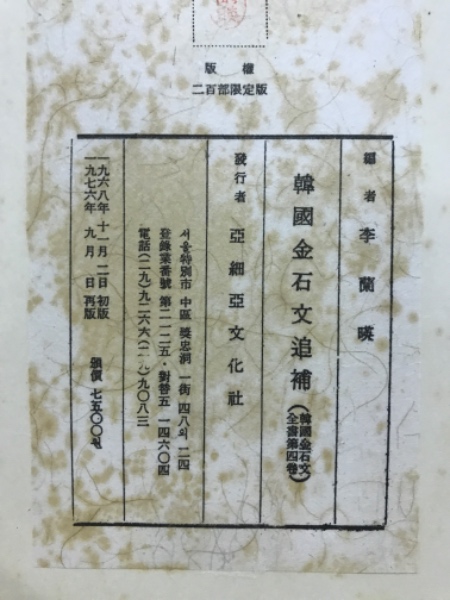 版權
二百部限定版
編者 李蘭暎
韓國金石文追補(韓國金石文
全書第四卷)
發行者 亞細亞文化社
서울特別市 中區 奬忠洞 一街 四八의 二四
登錄業番號 第二一二五・對替五一四六〇四
電話(二九)九二六六(二九)九〇八三
一九六八年 十一月 二日 初版
一九七六年 九月 日 再版
頒價 七五〇〇원